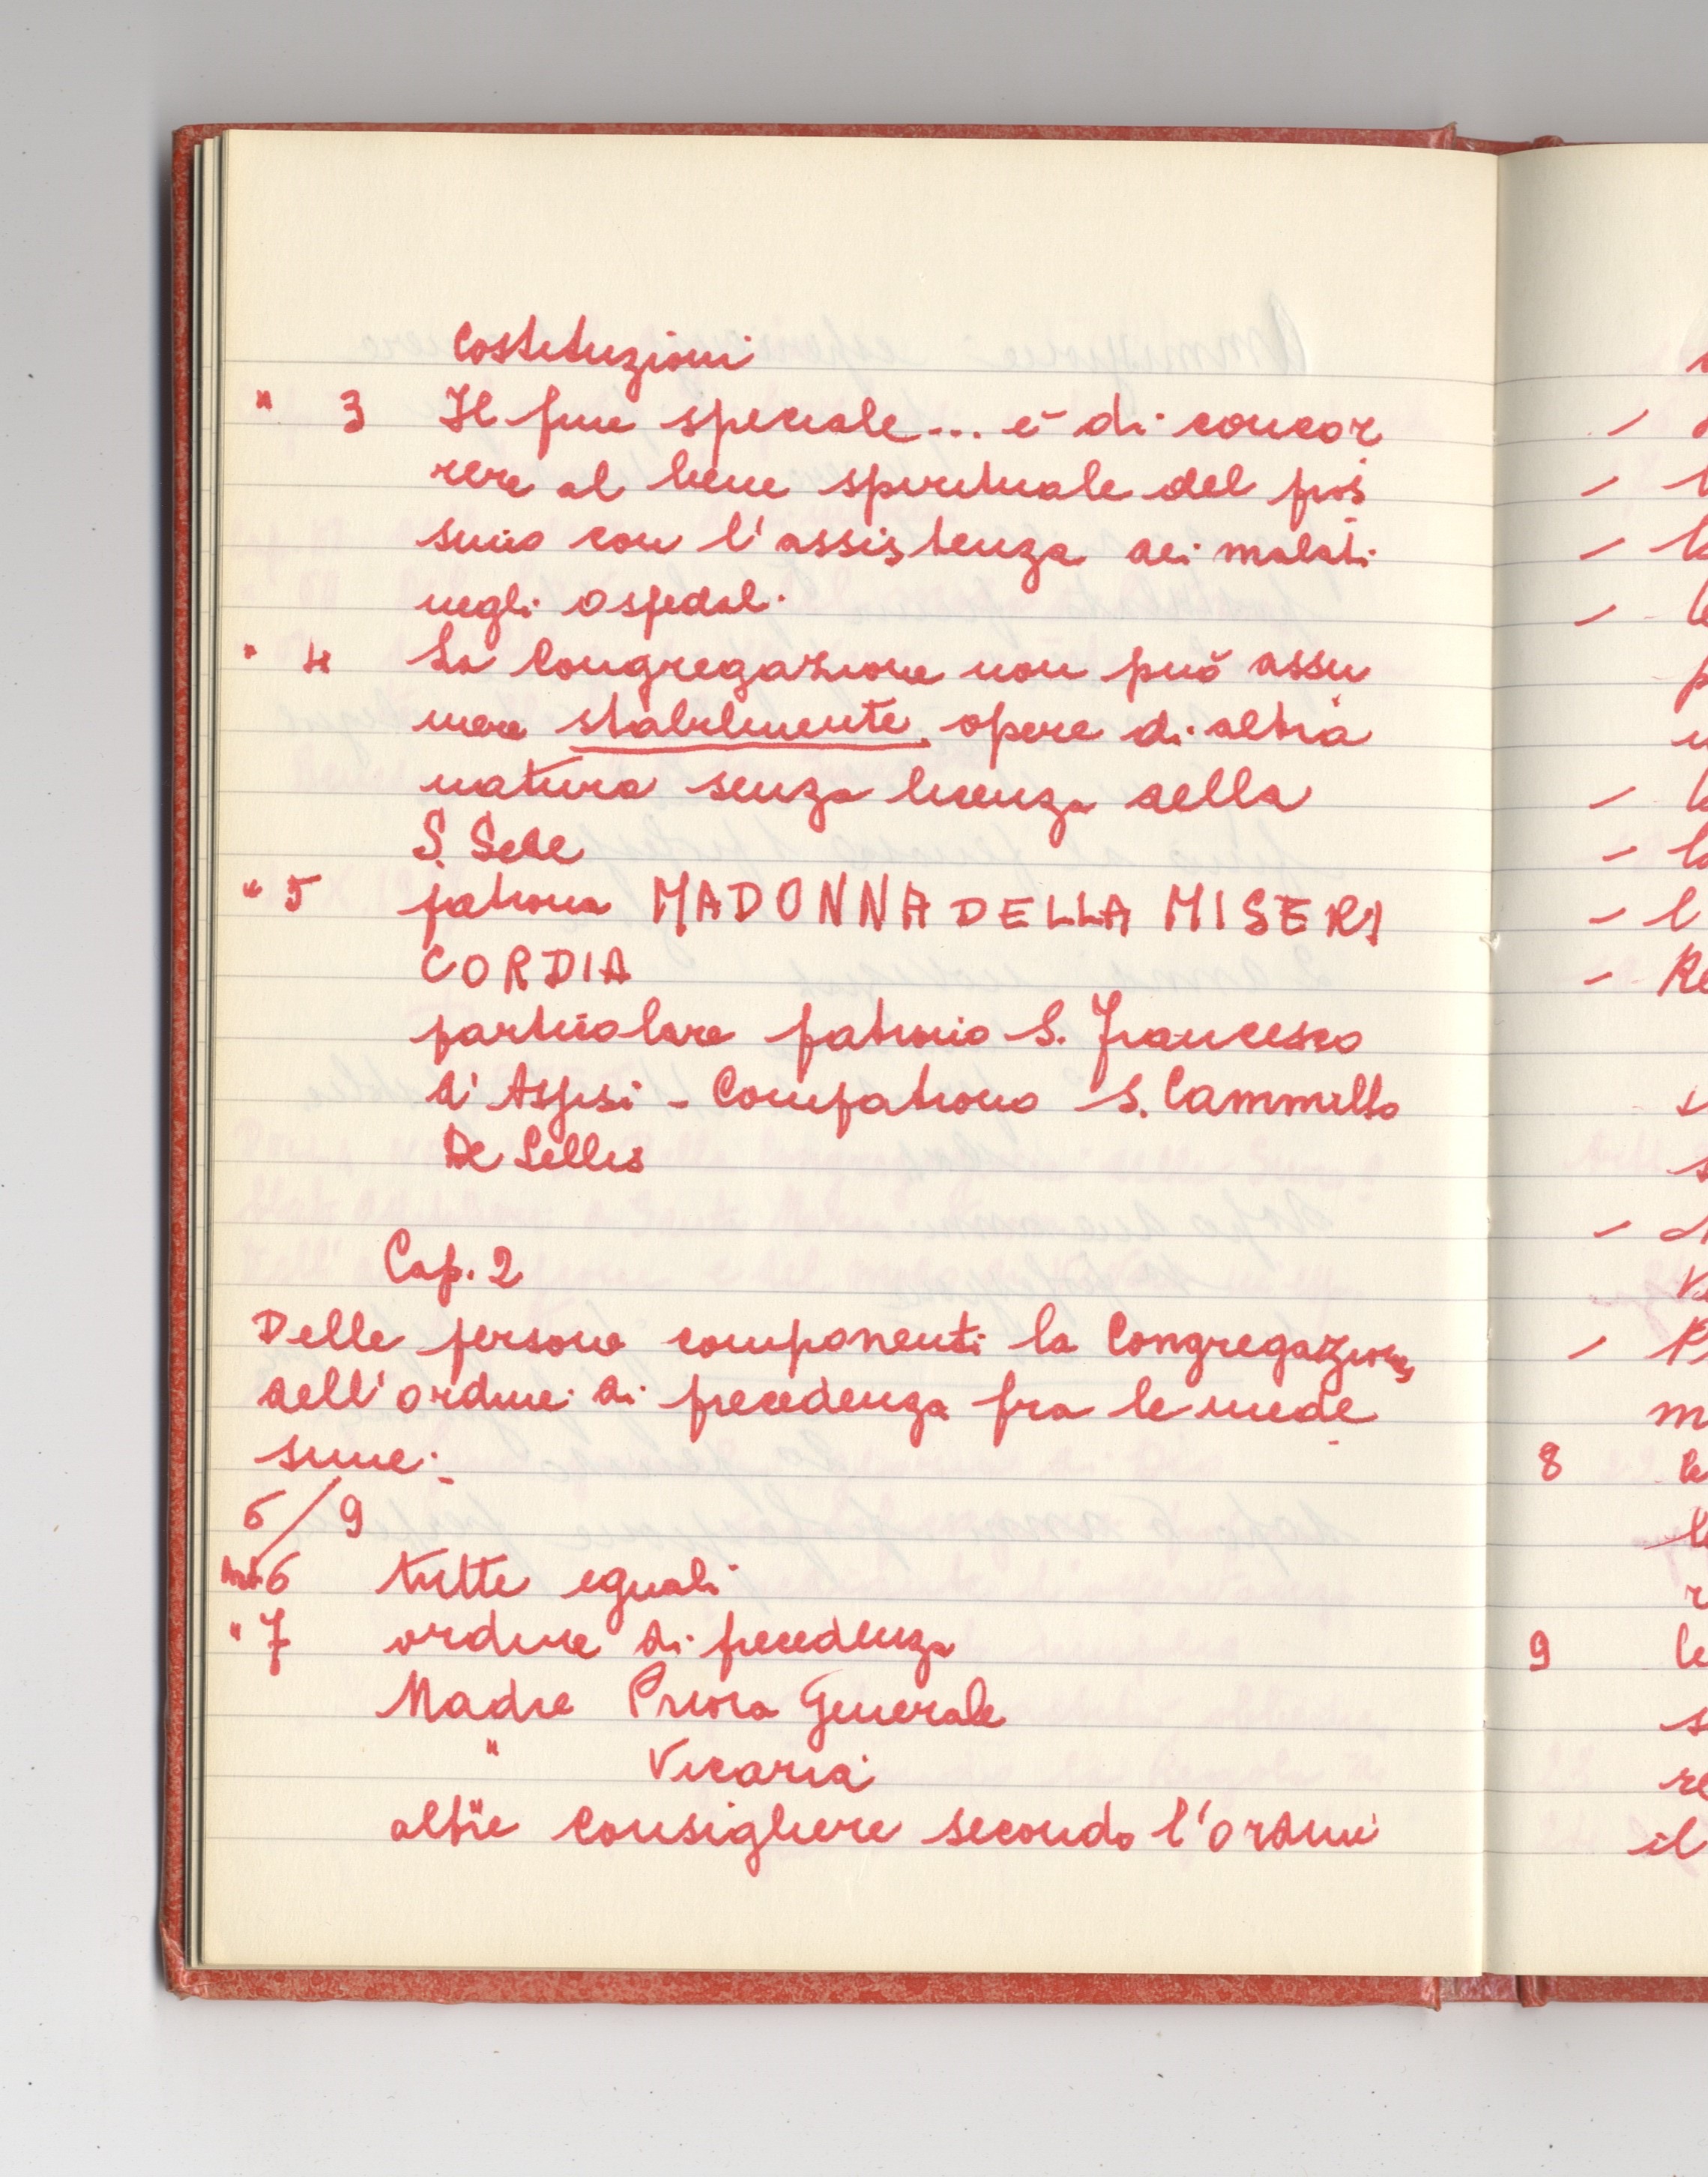 Costituzioni
" 3 Il fine speciale... è di concor
rere al bene spirituale del pros
simo con l'assistenza dei malati
negli ospedali
" 4 La Congregazione non può assu
mere stabilmente opere di altra
natura senza licenza della
S. Sede
" 5 patrona MADONNA DELLA MISERI
CORDIA
particolare patrono S. Francesco
d'Assisi - Compatrono S. Cammillo
De Lellis
Cap. 2
Delle persone componenti la Congregazione
dell'ordine di precedenza fra le mede
sime:
6/9
Art 6 tutte eguali
" 7 ordine di precedenza
Madre Priora Generale
" Vicaria
altre Consigliere secondo l'ordine
8
9